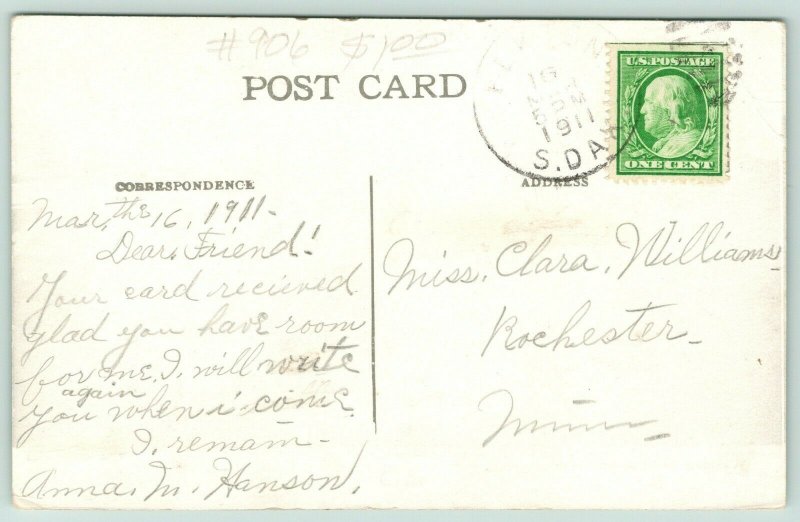 #906 $1.00
POST CARD
1911
S.DAK
U.S. POSTAGE
ONE CENT
CORRESPONDENCE
ADDRESS
Mar, the 16, 1911.
Dear, Friend!
Your card recieved
glad you have room
for me, I. will write
again
you when i come
I. remain
Anna. M. Hanson.
Miss. Clara. Williams
Rochester
Minn